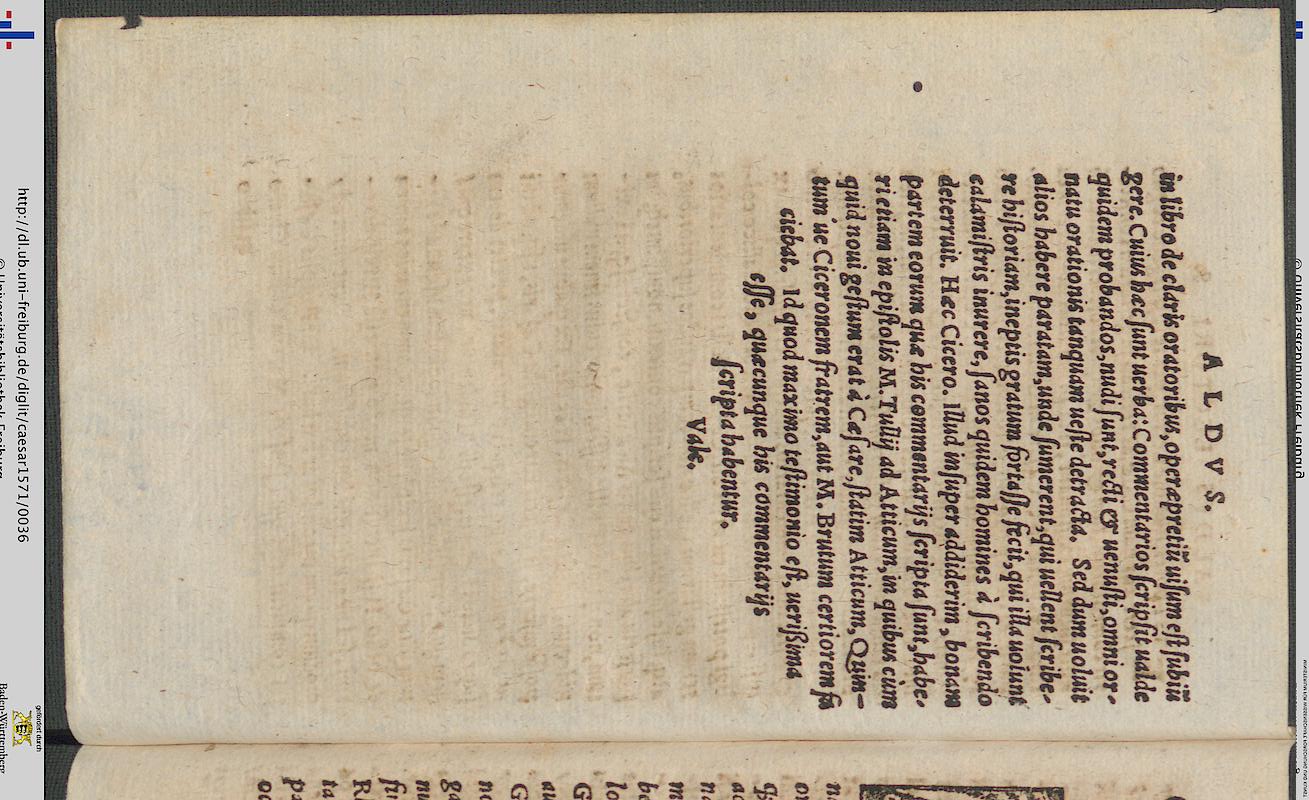 ALDVS.
in libro de claris oratoribus, operæpretiũ uiſum eſt ſubiũ
gere. Cuius hæc ſunt uerba: Commentarios ſcripſit ualde
quidem probandos, nudi ſunt, recti & uenuſti, omni or-
natu orationis tanquam ueſte detracta. Sed dum uoluit
alios habere paratam, unde ſumerent, qui uellent ſcribe-
re hiſtoriam, ineptis gratum fortaſſe fecit, qui illa uolunt
calamiſtris inurere, ſanos quidem homines à ſcribendo
deterruit. Hæc Cicero. Illud inſuper addiderim, bonam
partem eorum quæ his commentarijs ſcripta ſunt, habe-
ri etiam in epiſtolis M. Tullij ad Atticum, in quibus cùm
quid noui geſtum erat à Cæſare, ſtatim Atticum, Quin-
tum ue Ciceronem fratrem, aut M. Brutum certiorem fa
ciebat. Id quod maximo teſtimonio eſt, ueriſsima
eſſe, quæcunque his commentarijs
ſcripta habentur.
Vale.
http://dl.ub.uni-freiburg.de/diglit/caesar1571/0036
© Universitätsbibliothek Freiburg
gefördert durch
Baden-Württemberg